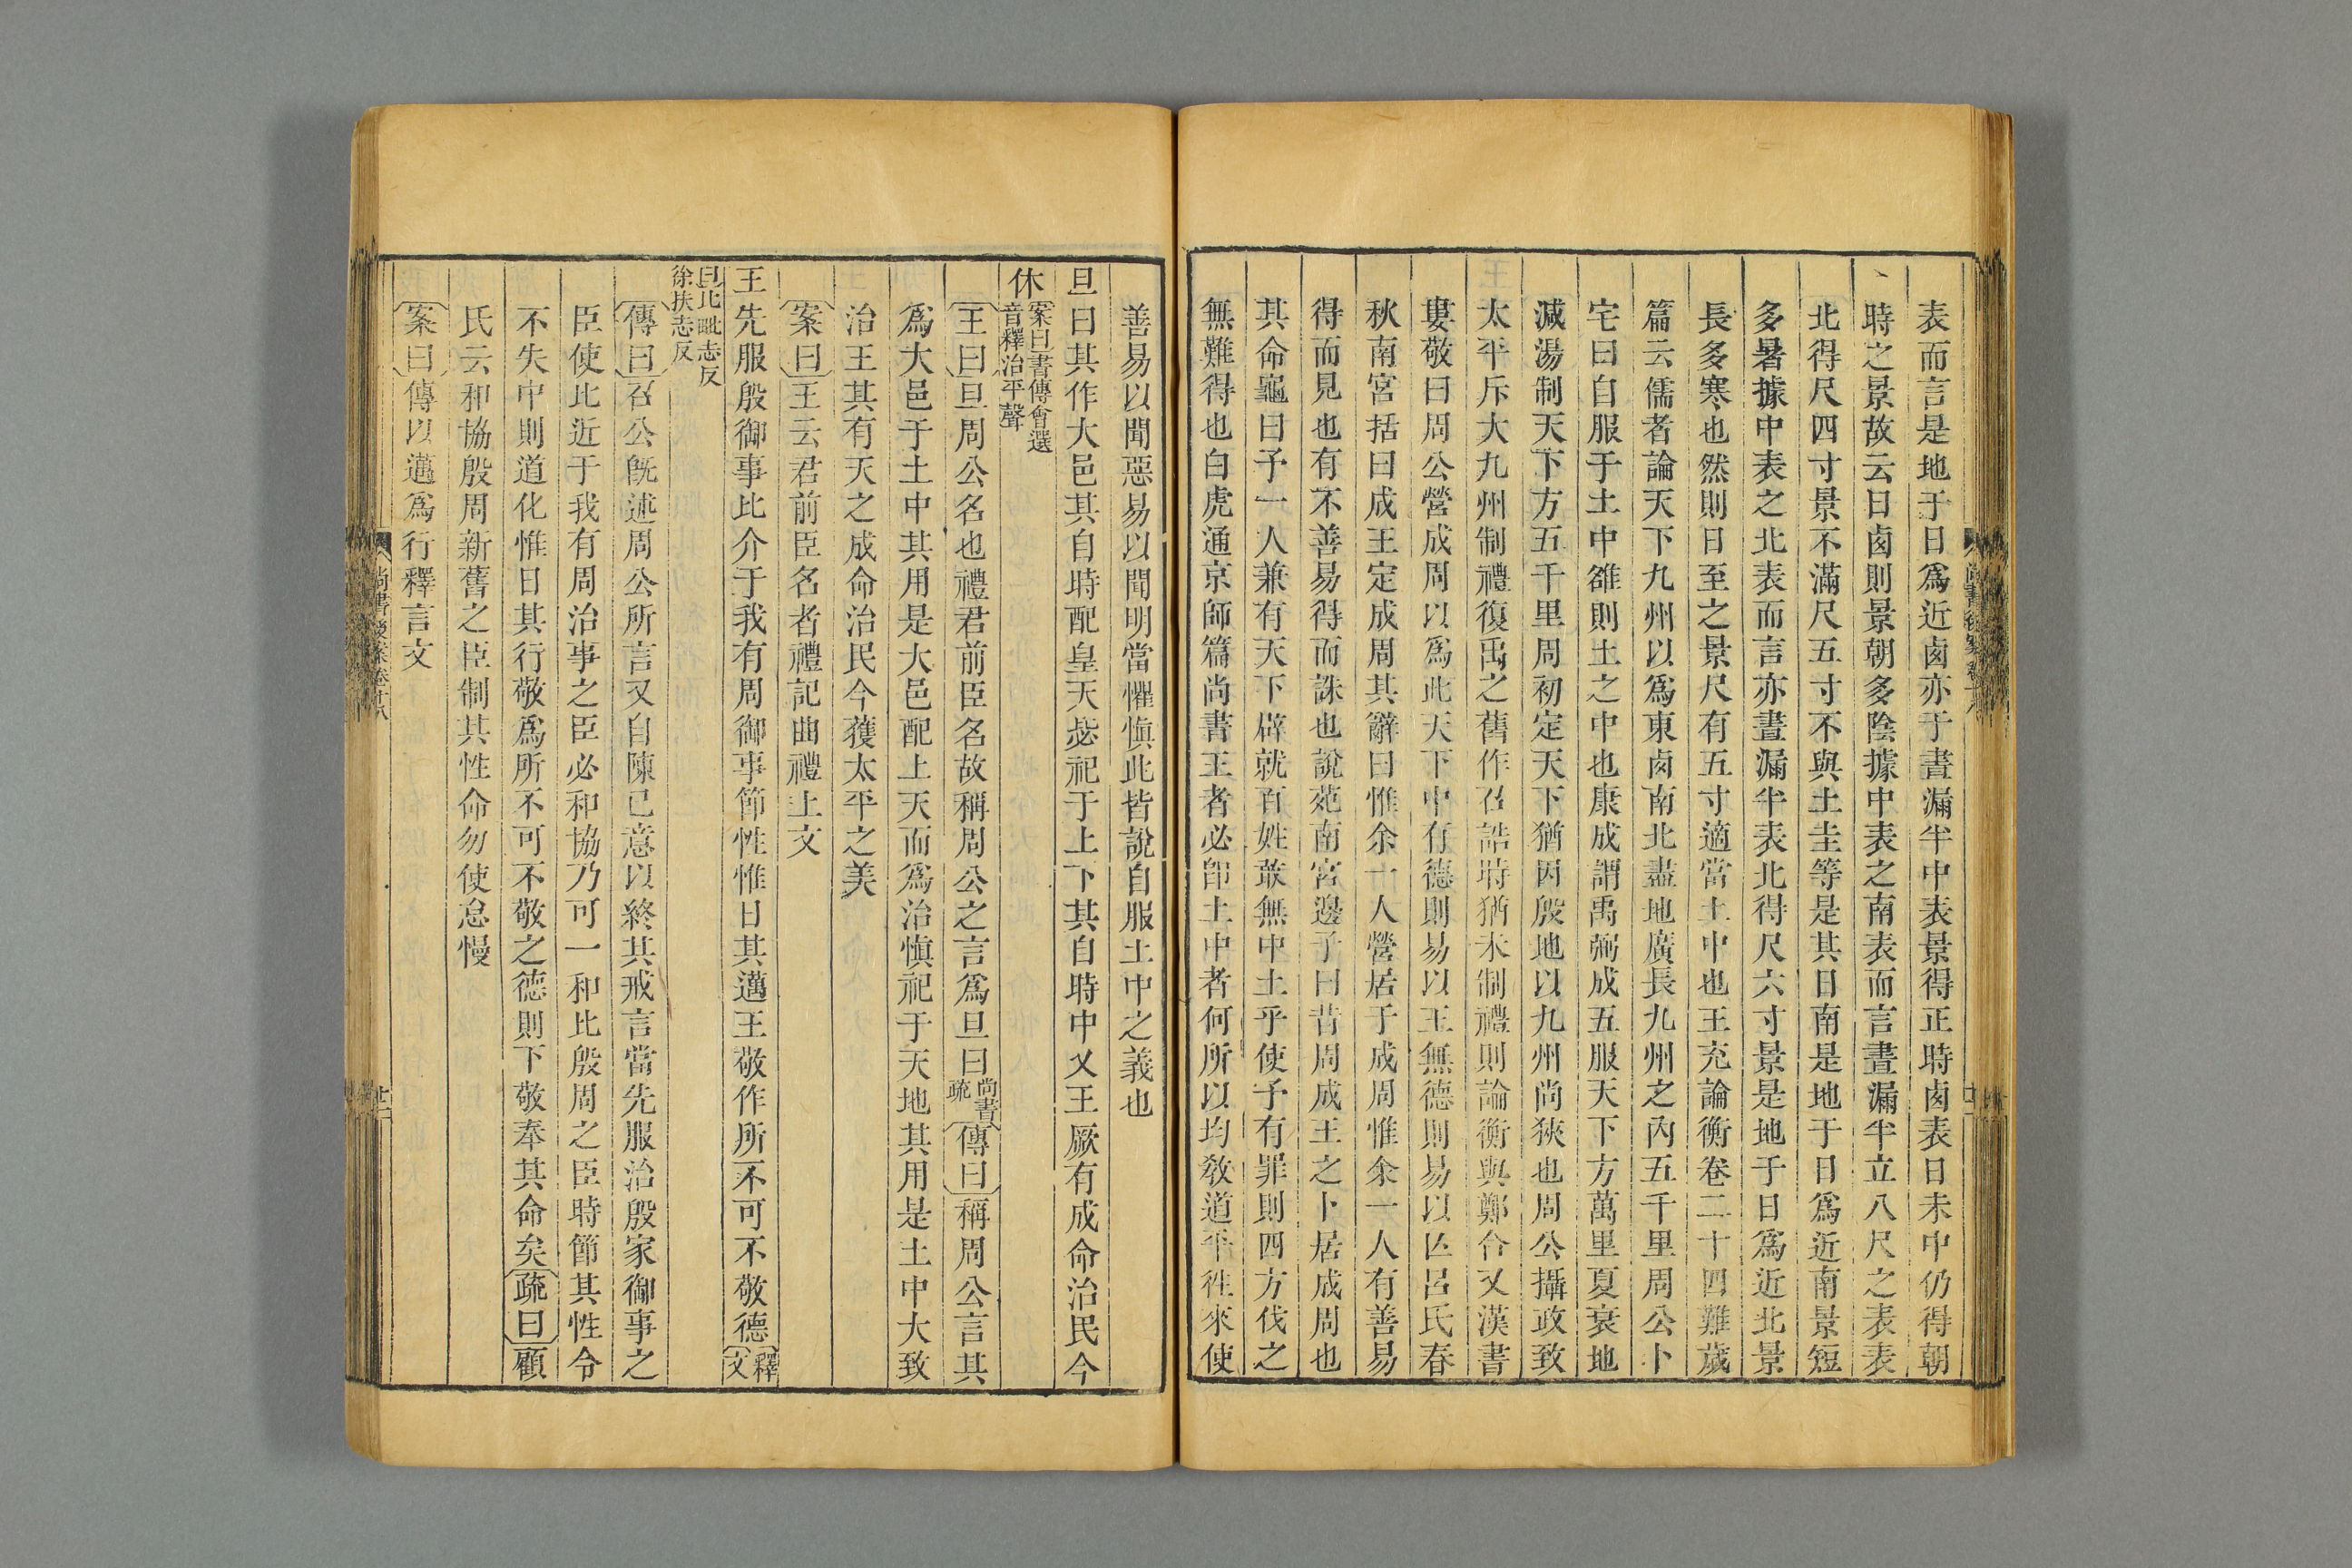 表而言是地于日爲近卤亦于晝漏半中表景得正時卤表日未中仍得朝
時之景故云日卤則景朝多陰據中表之南表而言晝漏半立八尺之表表
北得尺四寸景不滿尺五寸不與土圭等是其日南是地于日爲近南景短
多暑據中表之北表而言亦晝漏半表北得尺六寸景是地于日爲近北景
長多寒也然則日至之景尺有五寸適當土中也王充論衡卷二十四難歲
篇云儒者論天下九州以爲東卤南北盡地廣長九州之內五千里周公卜
宅曰自服于土中雒則土之中也康成謂禹弼成五服天下方萬里夏衰地
減湯制天下方五千里周初定天下猶因殷地以九州尚狹也周公攝政致
太平斥大九州制禮復禹之舊作召誥時猶未制禮則論衡與鄭合又漢書
婁敬曰周公營成周以爲此天下中有德則易以王無德則易以亾呂氏春
秋南宮括曰成王定成周其辭曰惟余一人營居于成周惟余一人有善易
得而見也有不善易得而誅也說苑南宮邊子曰昔周成王之卜居成周也
其命龜曰予一人兼有天下辟就百姓敢無中土乎使予有罪則四方伐之
無難得也白虎通京師篇尚書王者必卽土中者何所以均敎道平徃來使
善易以聞惡易以聞明當懼愼此皆說自服土中之義也
旦曰其作大邑其自時配皇天毖祀于上下其自時中乂王厥有成命治民今
休案曰書傳會選
音釋治平聲
王曰旦周公名也禮君前臣名故稱周公之言爲旦曰尚書
疏傳曰稱周公言其
爲大邑于土中其用是大邑配上天而爲治愼祀于天地其用是土中大致
治王其有天之成命治民今獲太平之美
案曰王云君前臣名者禮記曲禮上文
王先服殷御事比介于我有周御事節性惟日其邁王敬作所不可不敬德釋
文
曰比毗志反
徐扶志反
傳曰召公旣述周公所言又自陳己意以終其戒言當先服治殷家御事之
臣使比近于我有周治事之臣必和協乃可一和比殷周之臣時節其性令
不失中則道化惟日其行敬爲所不可不敬之德則下敬奉其命矣疏曰顧
氏云和協殷周新舊之臣制其性命勿使怠慢
案曰傳以邁爲行釋言文
尚書後案卷十八